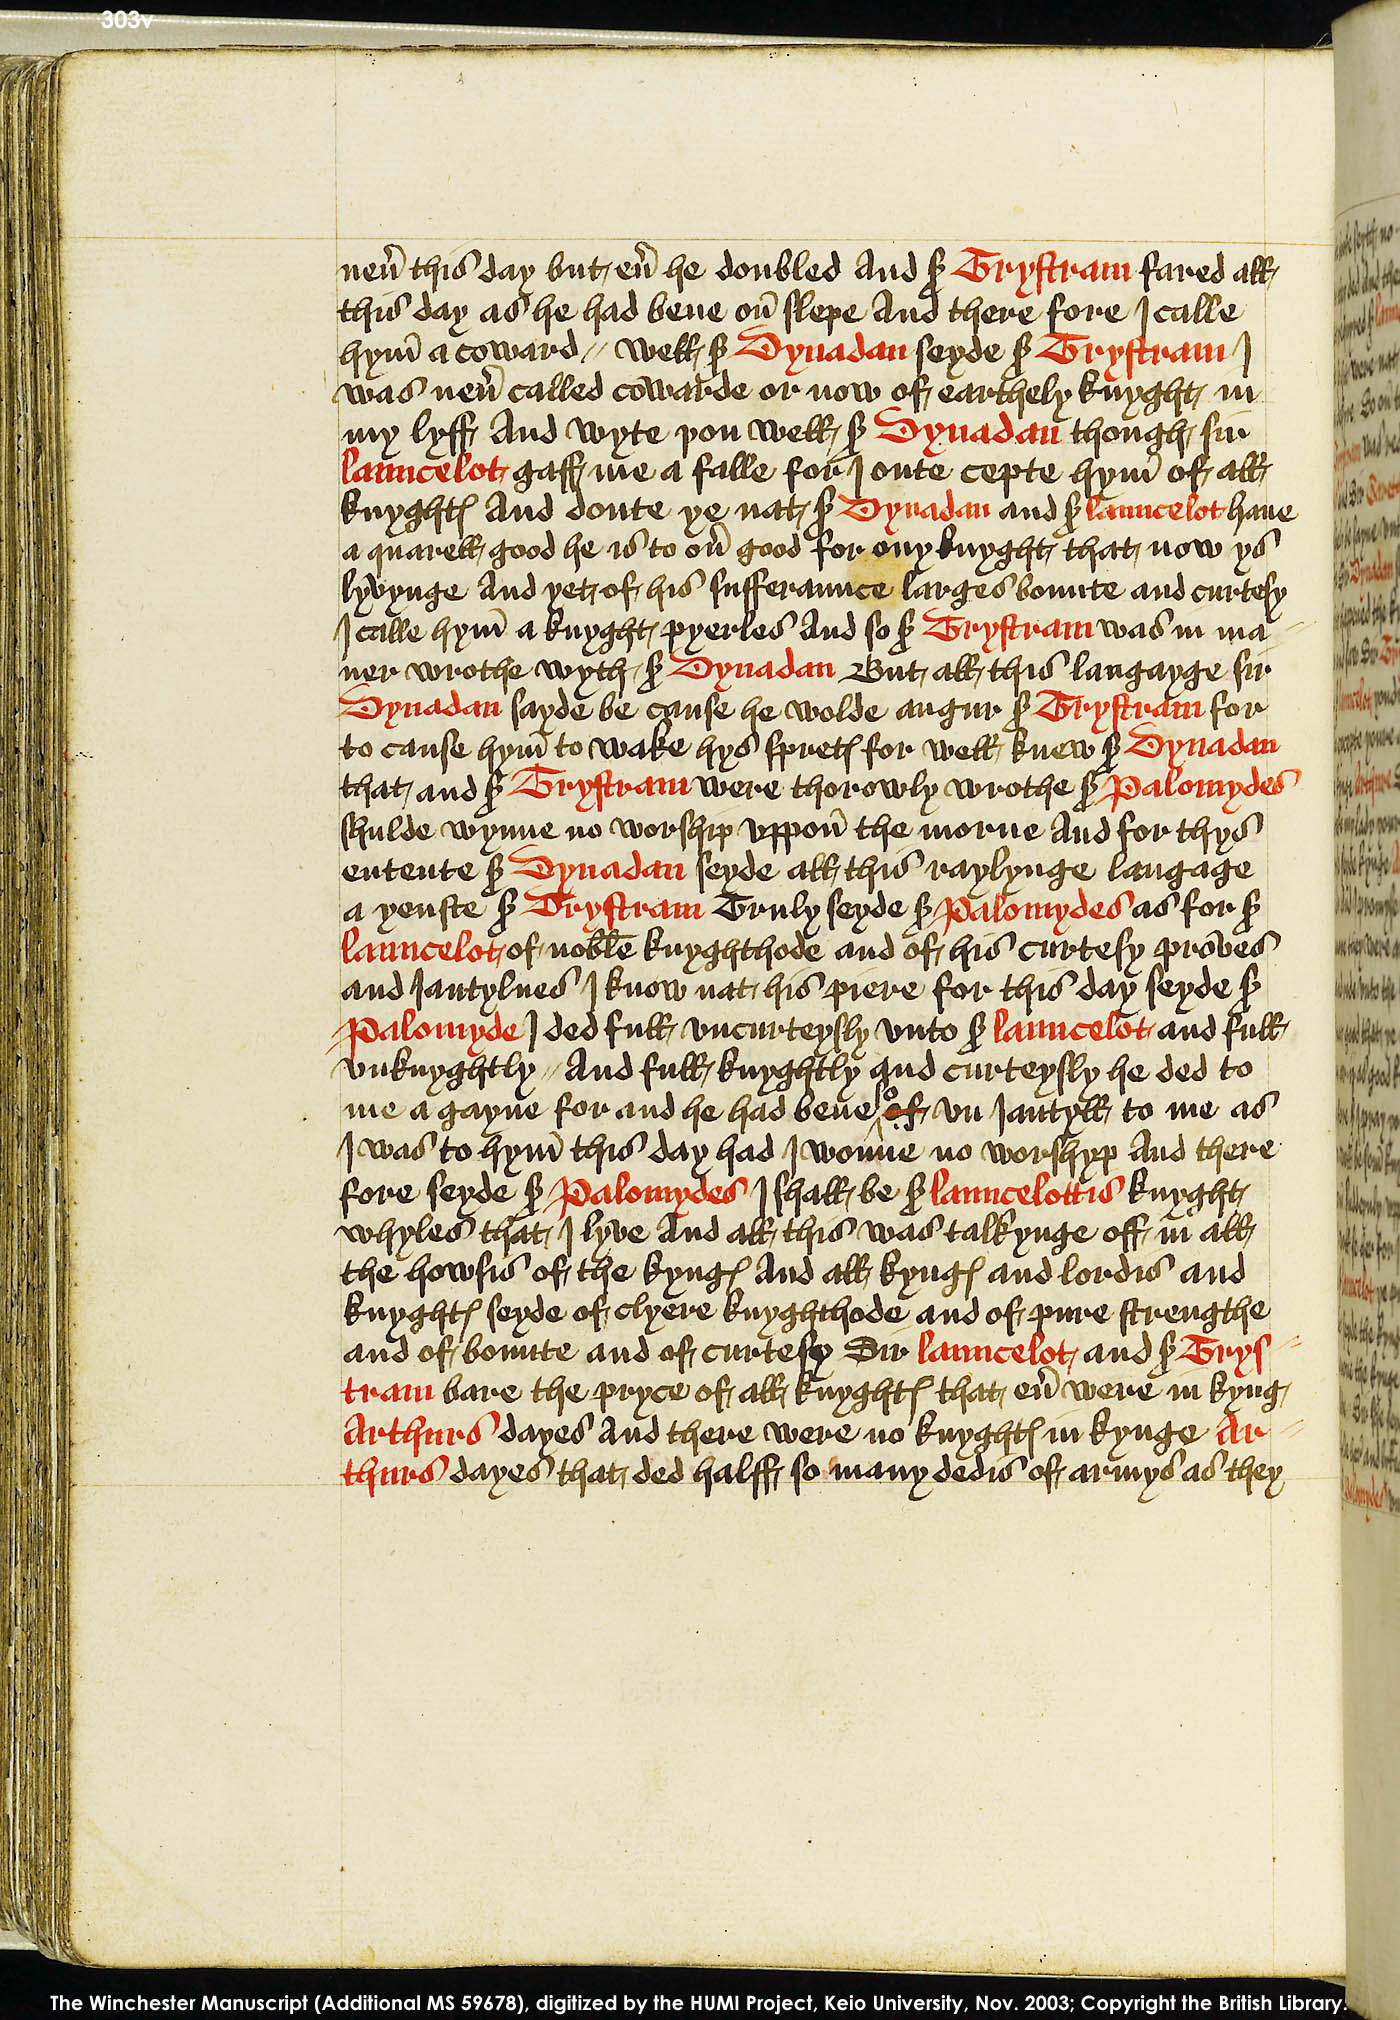 303v
neu̅ this day but eu̅ he doubled And s̃ Trystram fared all
this day as he had bene on̅ slepe And there fore I calle
hym̅ a coward // well s̃ Dynadan seyde s̃ Trystram I
was neu̅ called cowarde or now of earthely knyght in
my lyff And wyte you well s̃ Dynadan though sir
launcelot gaff me a falle for I oute cepte hym̅ of all
knyghtꝭ And doute ye nat s̃ Dynadan and s̃ launcelot haue
a quarell good he is to ou̅ good for ony knyght that now ys
lyvynge And yet of his sufferaunce larges bounte and curtesy
I calle hym̅ a knyght pyerles And so s̃ Trystram was in ma//
ner wrothe wyth s̃ Dynadan But all this langayge sir
Dynadan sayde be cause he wolde angur s̃ Trystram for
to cause hym̅ to wake hys spretꝭ for well knew s̃ Dynadan
that and s̃ Trystram were thorowly wrothe s̃ Palomydes
shulde wynne no worship vppon̅ the morne And for thys
entente s̃ Dynadan seyde all this raylynge langage
a yenste s̃ Trystram Truly seyde s̃ Palomydes as for s̃
launcelot of noble knyghthode and of his curtesy proves
and Jantylnes I know nat his piere for this day seyde s̃
Palomyde I ded full vncurteysly vnto s̃ launcelot and full
vnknyghtly // And full knyghtly and curteysly he ded to
me a gayne for and he had bene so of vn Jantyll to me as
I was to hym̅ this day had I wonne no worshyp And there
fore seyde s̃ Palomydes I shall be s̃ launcelottis knyght
whyles that I lyve And all this was talkynge off in all
the howsis of the kyngꝭ And all kyngꝭ and lordis and
knyghtꝭ seyde of clyere knyghthode and of pure strengthe
and of bounte and of curtesy Sir launcelot and s̃ Trys//
tram bare the pryce of all knyghtꝭ that eu̅ were in kyng
Arthurs dayes And there were no knyghtꝭ in kynge Ar//
thurs dayes that ded halff so many dedis of armys as they
The Winchester Manuscript (Additional MS 59678), digitized by the HUMI Project, Keio University, Nov. 2003; Copyright the British Library.